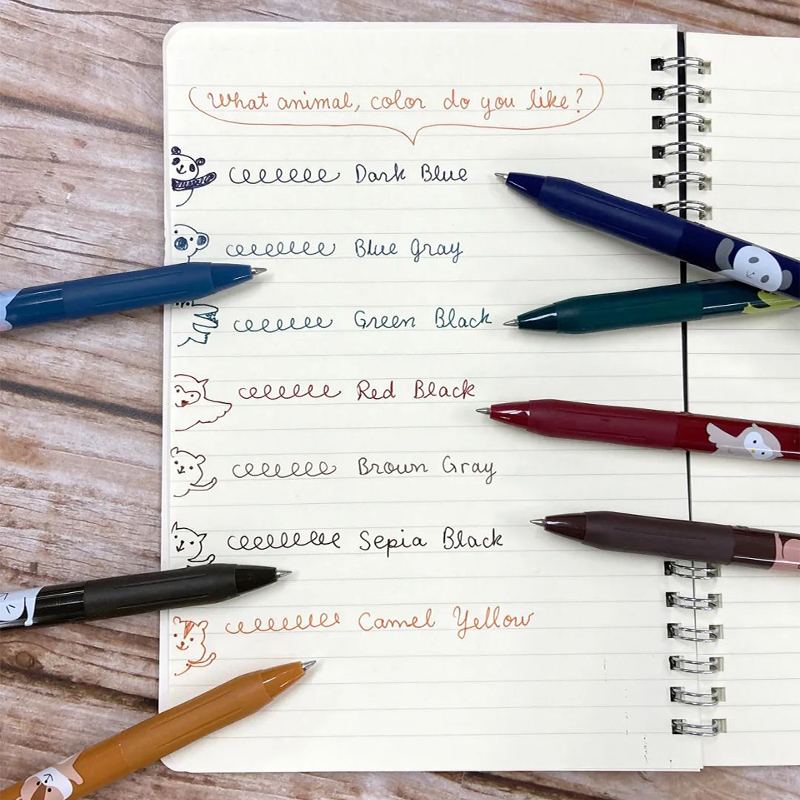 What animal, color do you like?
Dark Blue
Blue Gray
Green Black
Red Black
Brown Gray
Sepia Black
Camel Yellow